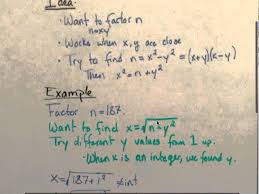 Idea
• Want to factor n
n=xy
• Works when x, y are close
• Try to find n = x²-y² = (x+y)(x-y)
Then x² = n+y²
Example
Factor n=187.
Want to find x=√n+y²
Try different y values from 1 up.
• When x is an integer, we found y.
x=√187+1² ≠int